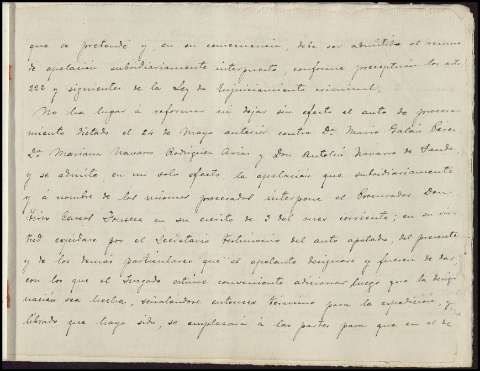 que se pretende y, en su consecuencia, debe ser admitido el recurso
de apelación subsidiariamente interpuesto, conforme preceptúan los arts
222 y siguientes de la Ley de Enjuiciamiento criminal.
No ha lugar á reformar ni dejar sin efecto el auto de procesa-
miento dictado el 24 de Mayo anterior contra Dª María Galán
Dª Mariana Navarro Rodríguez Arias y Don Antolín Navarro de
y se admite en un solo efecto la apelación que subsidiariamente
y á nombre de los mismos procesados interpone el Procurador Don
Fonseca en su escrito de 3 del mes corriente; en su vir-
tud expídase por el Secretario testimonio del auto apelado, del presente
y de los demás particulares que el apelante designare y fueren de dar
con los que el Juzgado estime conveniente adicionar luego que la desig-
nación sea hecha, señalándose entonces término para la expedición, y
librado que haya sido, se emplazará á las partes para que en el de